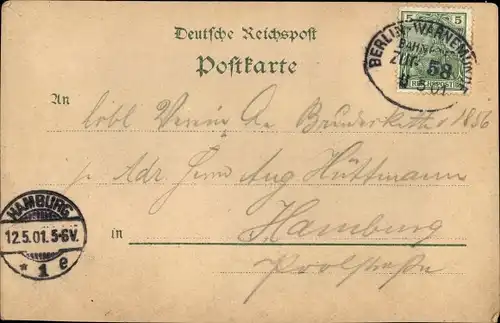 Deutsche Reichspost
Postkarte
5 5
REICHSPOST
BERLIN-WARNEMÜNDE
BAHNPOST
ZUG 58
An
löbl Verein An Bruderkette 1856
pr Adr Herrn Aug Hüttmann
in Hamburg
Poolstraße
HAMBURG
12.5.01.5-6V.
* 1 e